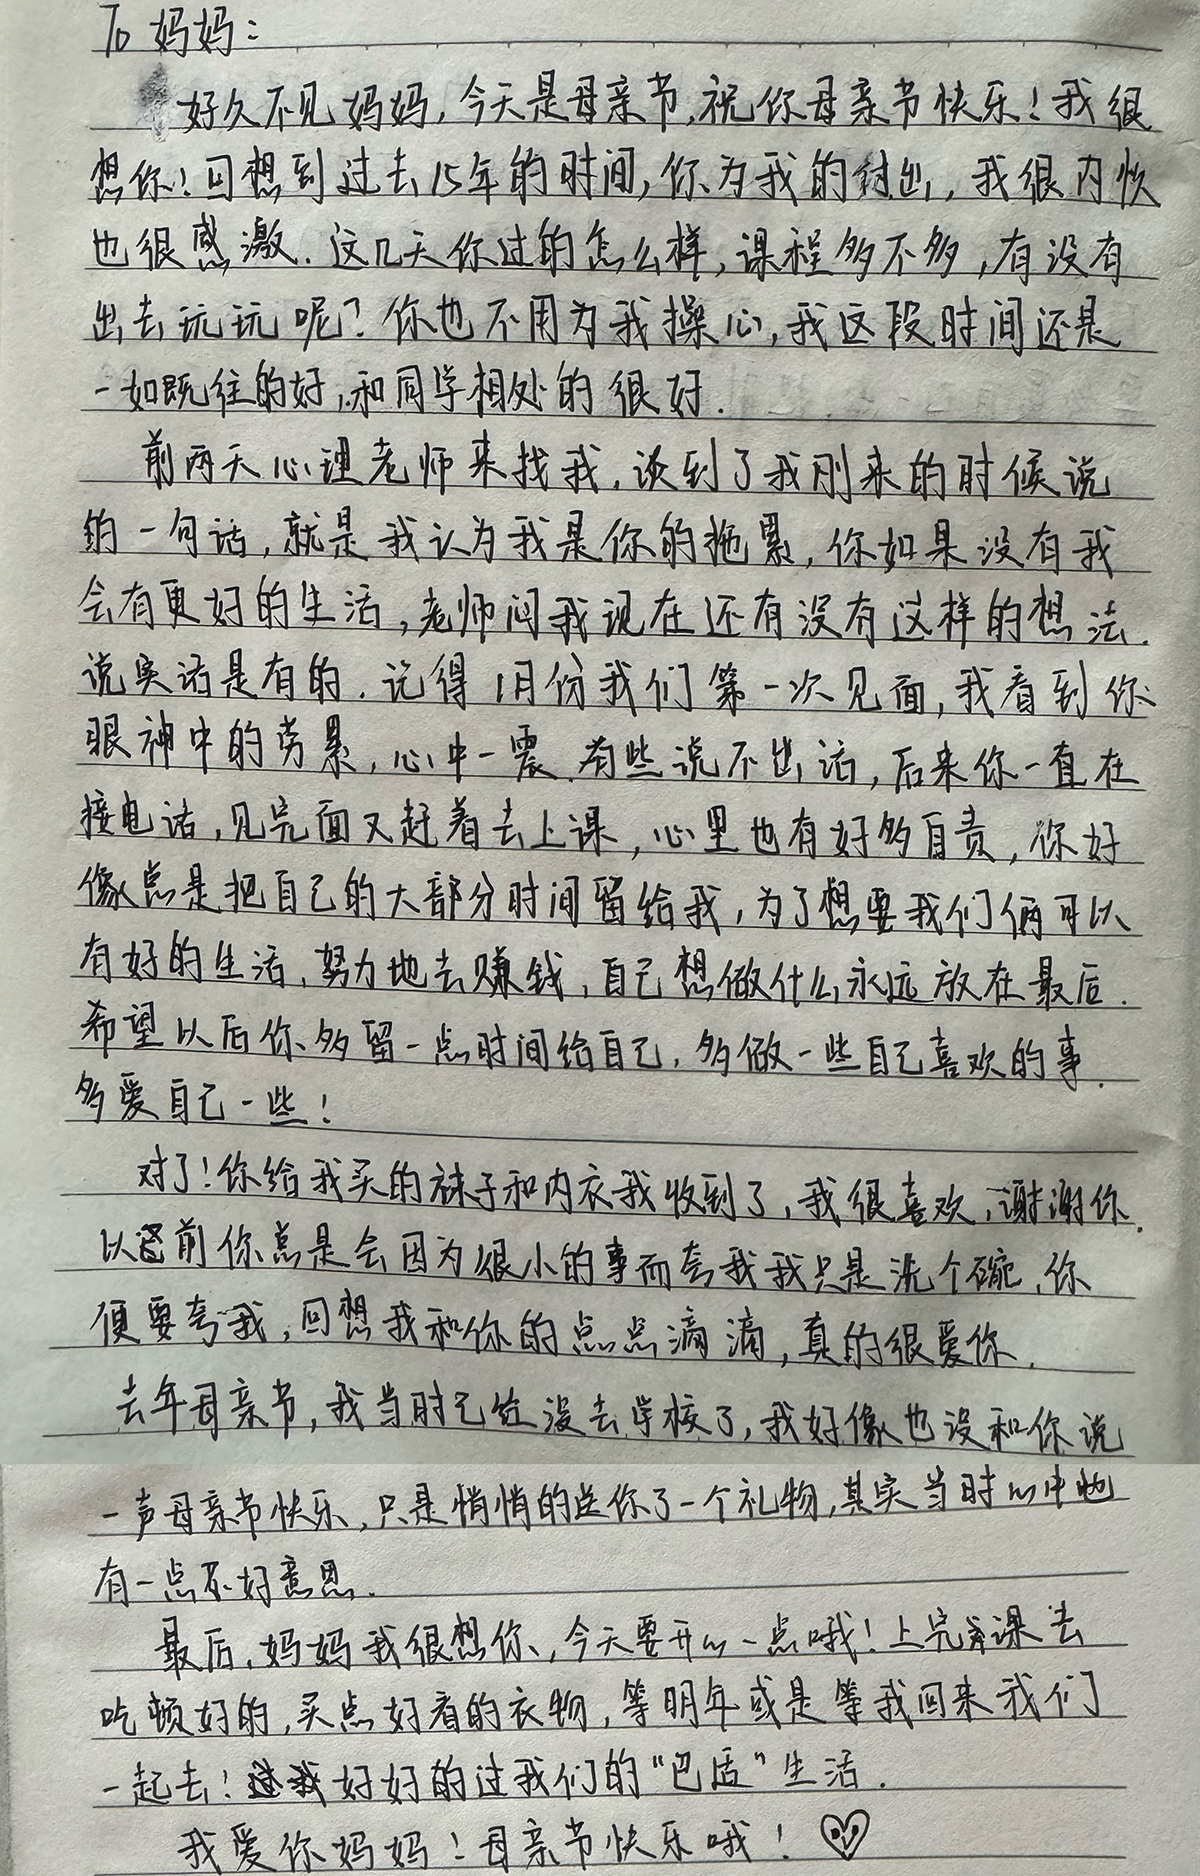 To 妈妈:
好久不见妈妈,今天是母亲节,祝你母亲节快乐!我很
想你!回想到过去15年的时间,你为我的付出,我很内疚
也很感激.这几天你过的怎么样,课程多不多,有没有
出去玩玩呢?你也不用为我操心,我这段时间还是
一如既往的好,和同学相处的很好.
前两天心理老师来找我,谈到了我刚来的时候说
的一句话,就是我认为我是你的拖累,你如果没有我
会有更好的生活,老师问我现在还有没有这样的想法.
说实话是有的.记得1月份我们第一次见面,我看到你
眼神中的劳累,心中一震.有些说不出话,后来你一直在
接电话,见完面又赶着去上课,心里也有好多自责,你好
像总是把自己的大部分时间留给我,为了想要我们俩可以
有好的生活,努力地去赚钱,自己想做什么永远放在最后.
希望以后你多留一点时间给自己,多做一些自己喜欢的事.
多爱自己一些!
对了!你给我买的袜子和内衣我收到了,我很喜欢,谢谢你.
以前你总是会因为很小的事而夸我我只是洗个碗,你
便要夸我,回想我和你的点点滴滴,真的很爱你.
去年母亲节,我当时已经没去学校了,我好像也没和你说
一声母亲节快乐,只是悄悄的送你了一个礼物,其实当时心中也
有一点不好意思.
最后,妈妈我很想你,今天要开心一点哦!上完课去
吃顿好的,买点好看的衣物,等明年或是等我回来我们
一起去!好好的过我们的“巴适”生活.
我爱你妈妈!母亲节快乐哦!